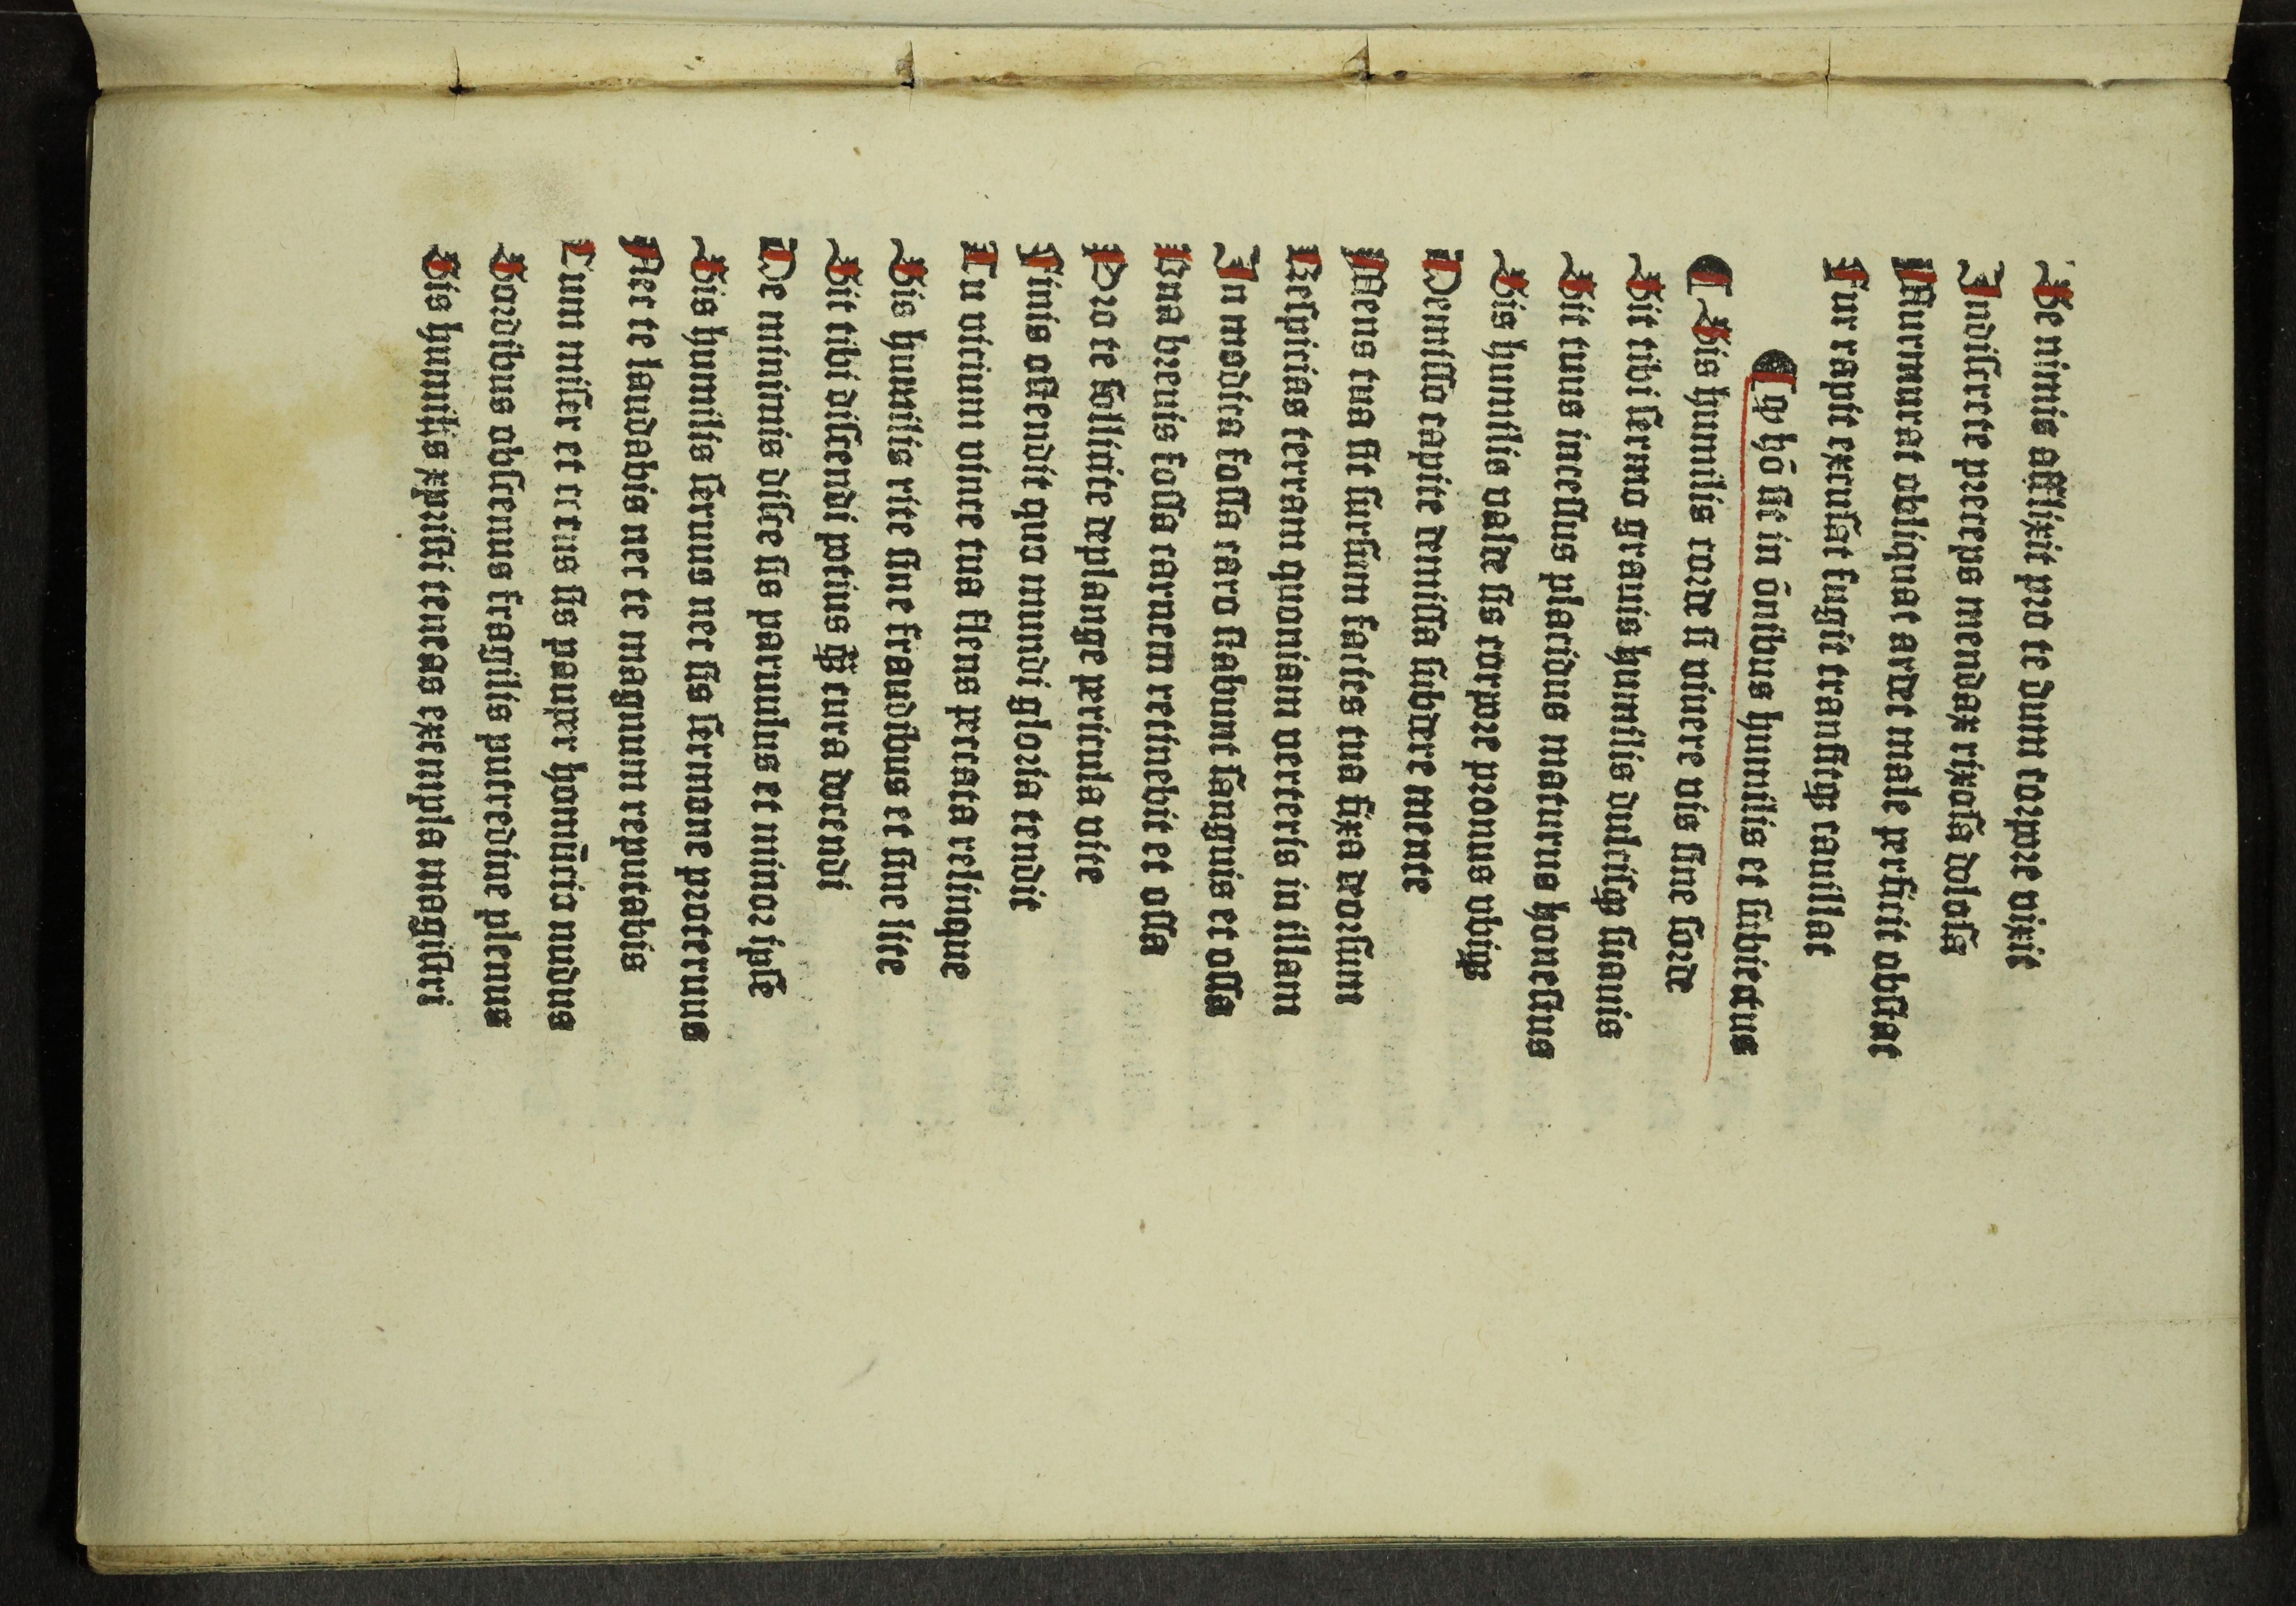 Se nimis afflixit pro te dum corpore vixit
Indiscrete preceps mendax rixosa dolosa
Murmurat obliquat ardet male perficit obstat
Fur rapit excusat fugit transitqꝫ cauillat
¶ Qꝙ hō sit in ōnibus humilis et subiectus
¶ Sis humilis corde si viuere vis sine sorde
Sit tibi sermo grauis humilis dulcisqꝫ suauis
Sit tuus incessus placidus maturus honestus
Sis humilis valde sis corpore pronus vbiqꝫ
Demisso capite demissa subdere mente
Mens tua sit sursum facies tua fixa deorsum
Respicias terram quoniam verteris in illam
In modica fossa caro stabunt sanguis et ossa
Una breuis fossa carnem retinebit et ossa
Pro te sollicite deplange pericula vite
Finis ostendit quo mundi gloria tendit
Tu vicium vince tua flens peccata relinque
Sis humilis rite sine fraudibus et sine lite
Sit tibi discendi potius q̄ꝫ cura docendi
De minimis disce sis paruulus et minor ipse
Sis humilis seruus nec sis sermone proteruus
Nec te laudabis nec te magnum reputabis
Cum miser et cecus sis pauper homūcio nudus
Sordibus obscenus fragilis putredine plenus
Sis humilis xpristi teneas exempla magistri